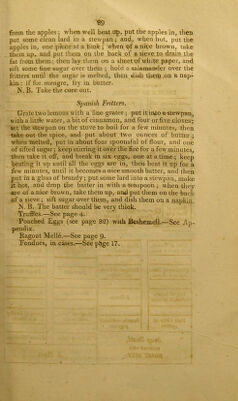 89
from the apples; when well beat up, put the apples in, then
put some clean lard in a stewpan; and, when hot, put the
apples in, one piece at a time; when of a nice brown, take
them up, and put them on the back of a sieve to drain the
fat from them; then lay them on a sheet of white paper, and
sift some fine sugar over them; hold a salamander over the
fritters until the sugar is melted, then dish them on a nap-
kin: if for meagre, fry in butter.
N. B. Take the core out.
Spanish Fritters.
Grate two lemons with a fine grater; put it into a stewpan,
with a little water, a bit of cinnamon, and four or five cloves;
set the stewpan on the stove to boil for a few minutes, then
take out the spice, and put about two ounces of butter;
when melted, put in about four spoonsful of flour, and one
of sifted sugar; keep stirring it over the fire for a few minutes,
then take it off, and break in six eggs, one at a time; keep
beating it up until all the eggs are in, then beat it up for a
few minutes, until it becomes a nice smooth batter, and then
put in a glass of brandy; put some lard into a stewpan, make
it hot, and drop the batter in with a teaspoon; when they
are of a nice brown, take them up, and put them on the back
of a sieve: sift sugar over them, and dish them on a napkin.
N. B. The batter should be very thick.
Truffles.—See page 4.
Poached Eggs (see page 82) with Bechemell.—See Ap-
pendix.
Ragout Mellé.—See page 9.
Fondues, in cases.—See page 17.